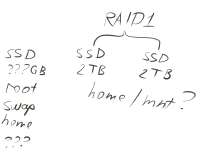 RAID1
SSD SSD SSD
???GB 2TB 2TB
root
swap
home
???
home/mnt?